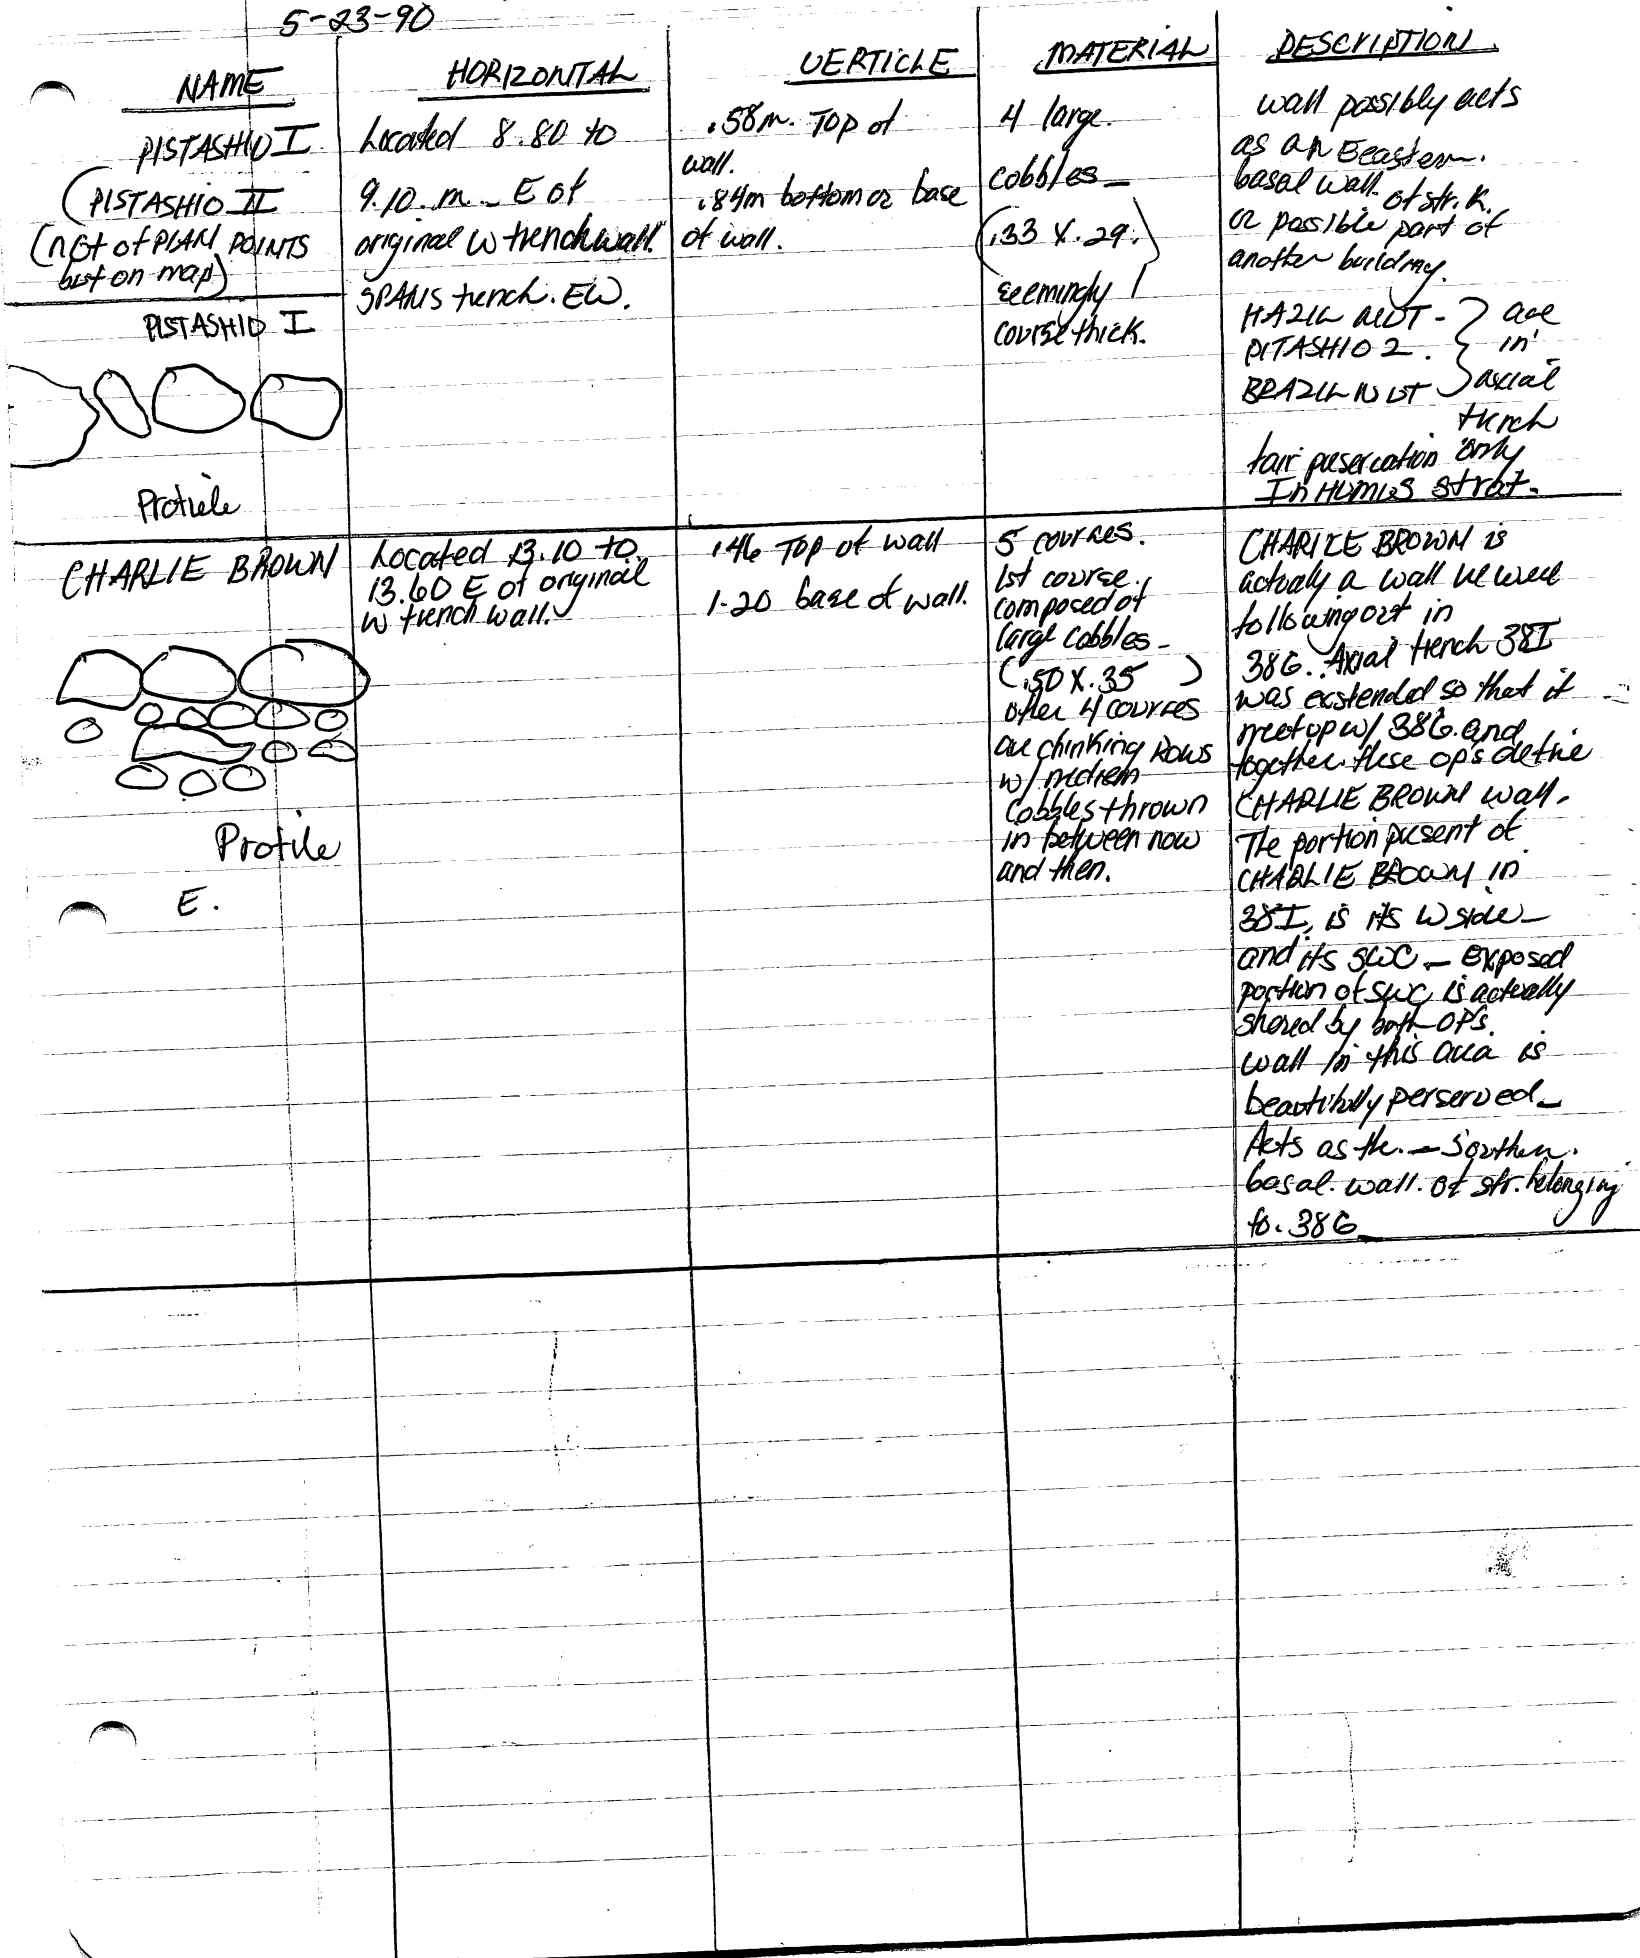 5-23-90
NAME
HORIZONTAL
VERTICLE
MATERIAL
DESCRIPTION
PISTASHIO I
(PISTASHIO II
(not of PLAN POINTS
but on map)
PISTASHIO I
Profile
Located 8.80 to
9.10. m. E of
original W trench wall.
SPANS trench. EW.
.58m. Top of
wall.
.84m bottom or base
of wall.
4 large.
cobbles
(.33 X .29.)
seemingly 1
course thick.
wall possibly acts
as an Eeastern.
basal wall. of str. K.
or possible part of
another building.
HAZIL NUT -
PITASHIO 2.
BRAZIL NUT
are
in
axial
trench
only
fair presercation
In HUMUS strat.
CHARLIE BROWN
Profile
E.
Located 13.10 to
13.60 E of original
W trench wall.
.46 Top of wall
1.20 base of wall.
5 courses.
1st course.
composed of
large cobbles -
(.50 X .35 )
other 4 courses
are chinking rows
w/ medium
cobbles thrown
in between now
and then.
CHARLIE BROWN is
actually a wall we were
following out in
38G. Axial trench 38I
was exstended so that it
meet up w/ 38G. and
together these op's define
CHARLIE BROWN wall.
The portion present of
CHARLIE BROWN in
38I, is its W side
and its SWC - exposed
portion of SWC is actually
shared by both OP's.
wall in this area is
beautifully perserved
Acts as the. - Southern.
basal. wall. of str. belonging
to. 38G